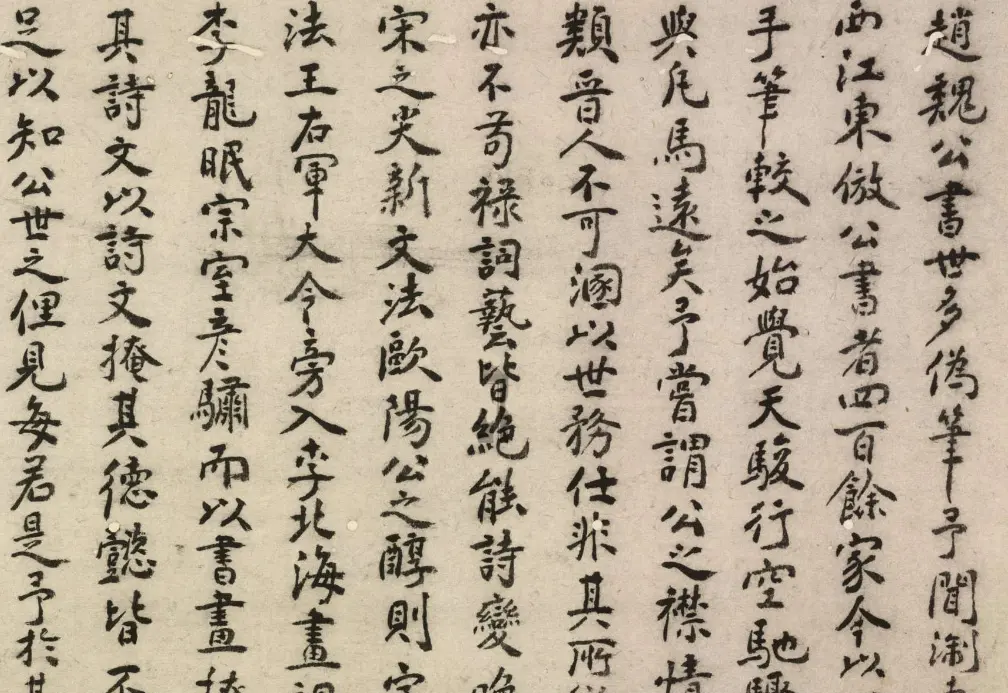 趙魏公書世多偽筆予聞淛
西江東倣公書者四百餘家今以
手筆較之始覺天駿行空馳
與凡馬遠矣予嘗謂公之襟情
類晉人不可溷以世務仕非其所
亦不苟祿詞藝皆絶能詩變晚
宋之尖新文法歐陽公之醇則字
法王右軍大令旁入李北海畫祖
李龍眠宗室彦驌而以書畫掩
其詩文以詩文掩其德懿皆不
足以知公世之俚見每若是予於其